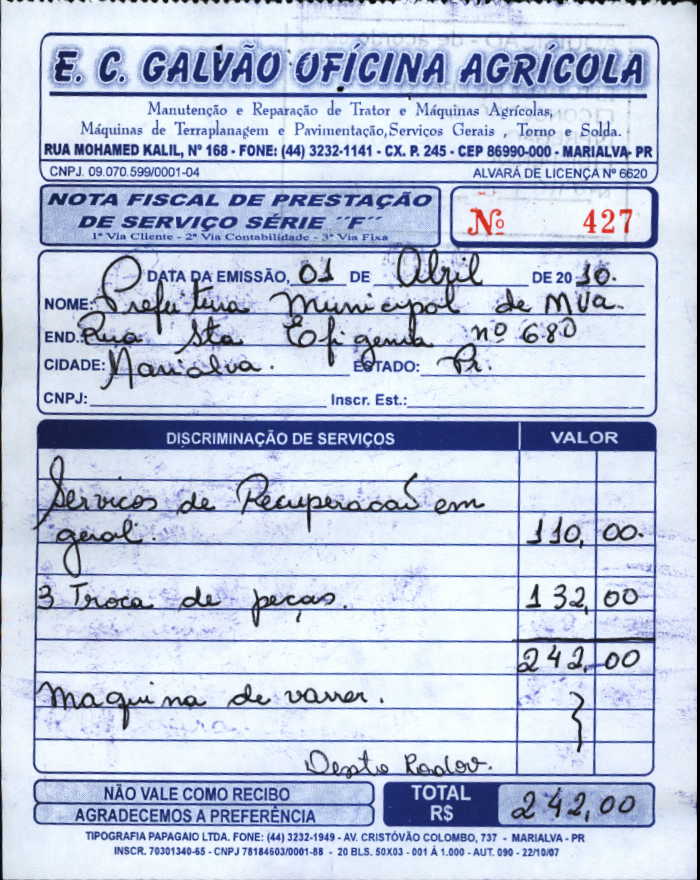 E. C. GALVÃO OFÍCINA AGRÍCOLA
Manutenção e Reparação de Trator e Máquinas Agrícolas,
Máquinas de Terraplanagem e Pavimentação,Serviços Gerais , Torno e Solda.
RUA MOHAMED KALIL, Nº 168 - FONE: (44) 3232-1141 - CX. P. 245 - CEP 86990-000 - MARIALVA- PR
CNPJ. 09.070.599/0001-04 ALVARÁ DE LICENÇA Nº 6620
NOTA FISCAL DE PRESTAÇÃO
DE SERVIÇO SÉRIE ´´F´´
1ª Via Cliente - 2ª Via Contabilidade - 3ª Via Fixa
Nº 427
DATA DA EMISSÃO, 01 DE Abril DE 2010.
NOME: Prefeitura Municipal de MVA.
END.: Rua Sta Efigenia nº 680
CIDADE: Marialva. ESTADO: Pr.
CNPJ: Inscr. Est.:
DISCRIMINAÇÃO DE SERVIÇOS VALOR
Serviços de Recuperacaõ em
geral. 110,00.
3 Troca de peças. 132,00
242,00
Maquina de varrer.
NÃO VALE COMO RECIBO
AGRADECEMOS A PREFERÊNCIA
TOTAL R$ 242,00
TIPOGRAFIA PAPAGAIO LTDA. FONE: (44) 3232-1949 - AV. CRISTÓVÃO COLOMBO, 737 - MARIALVA - PR
INSCR. 70301340-65 - CNPJ 78184603/0001-88 - 20 BLS. 50X03 - 001 Á 1.000 - AUT. 090 - 22/10/07